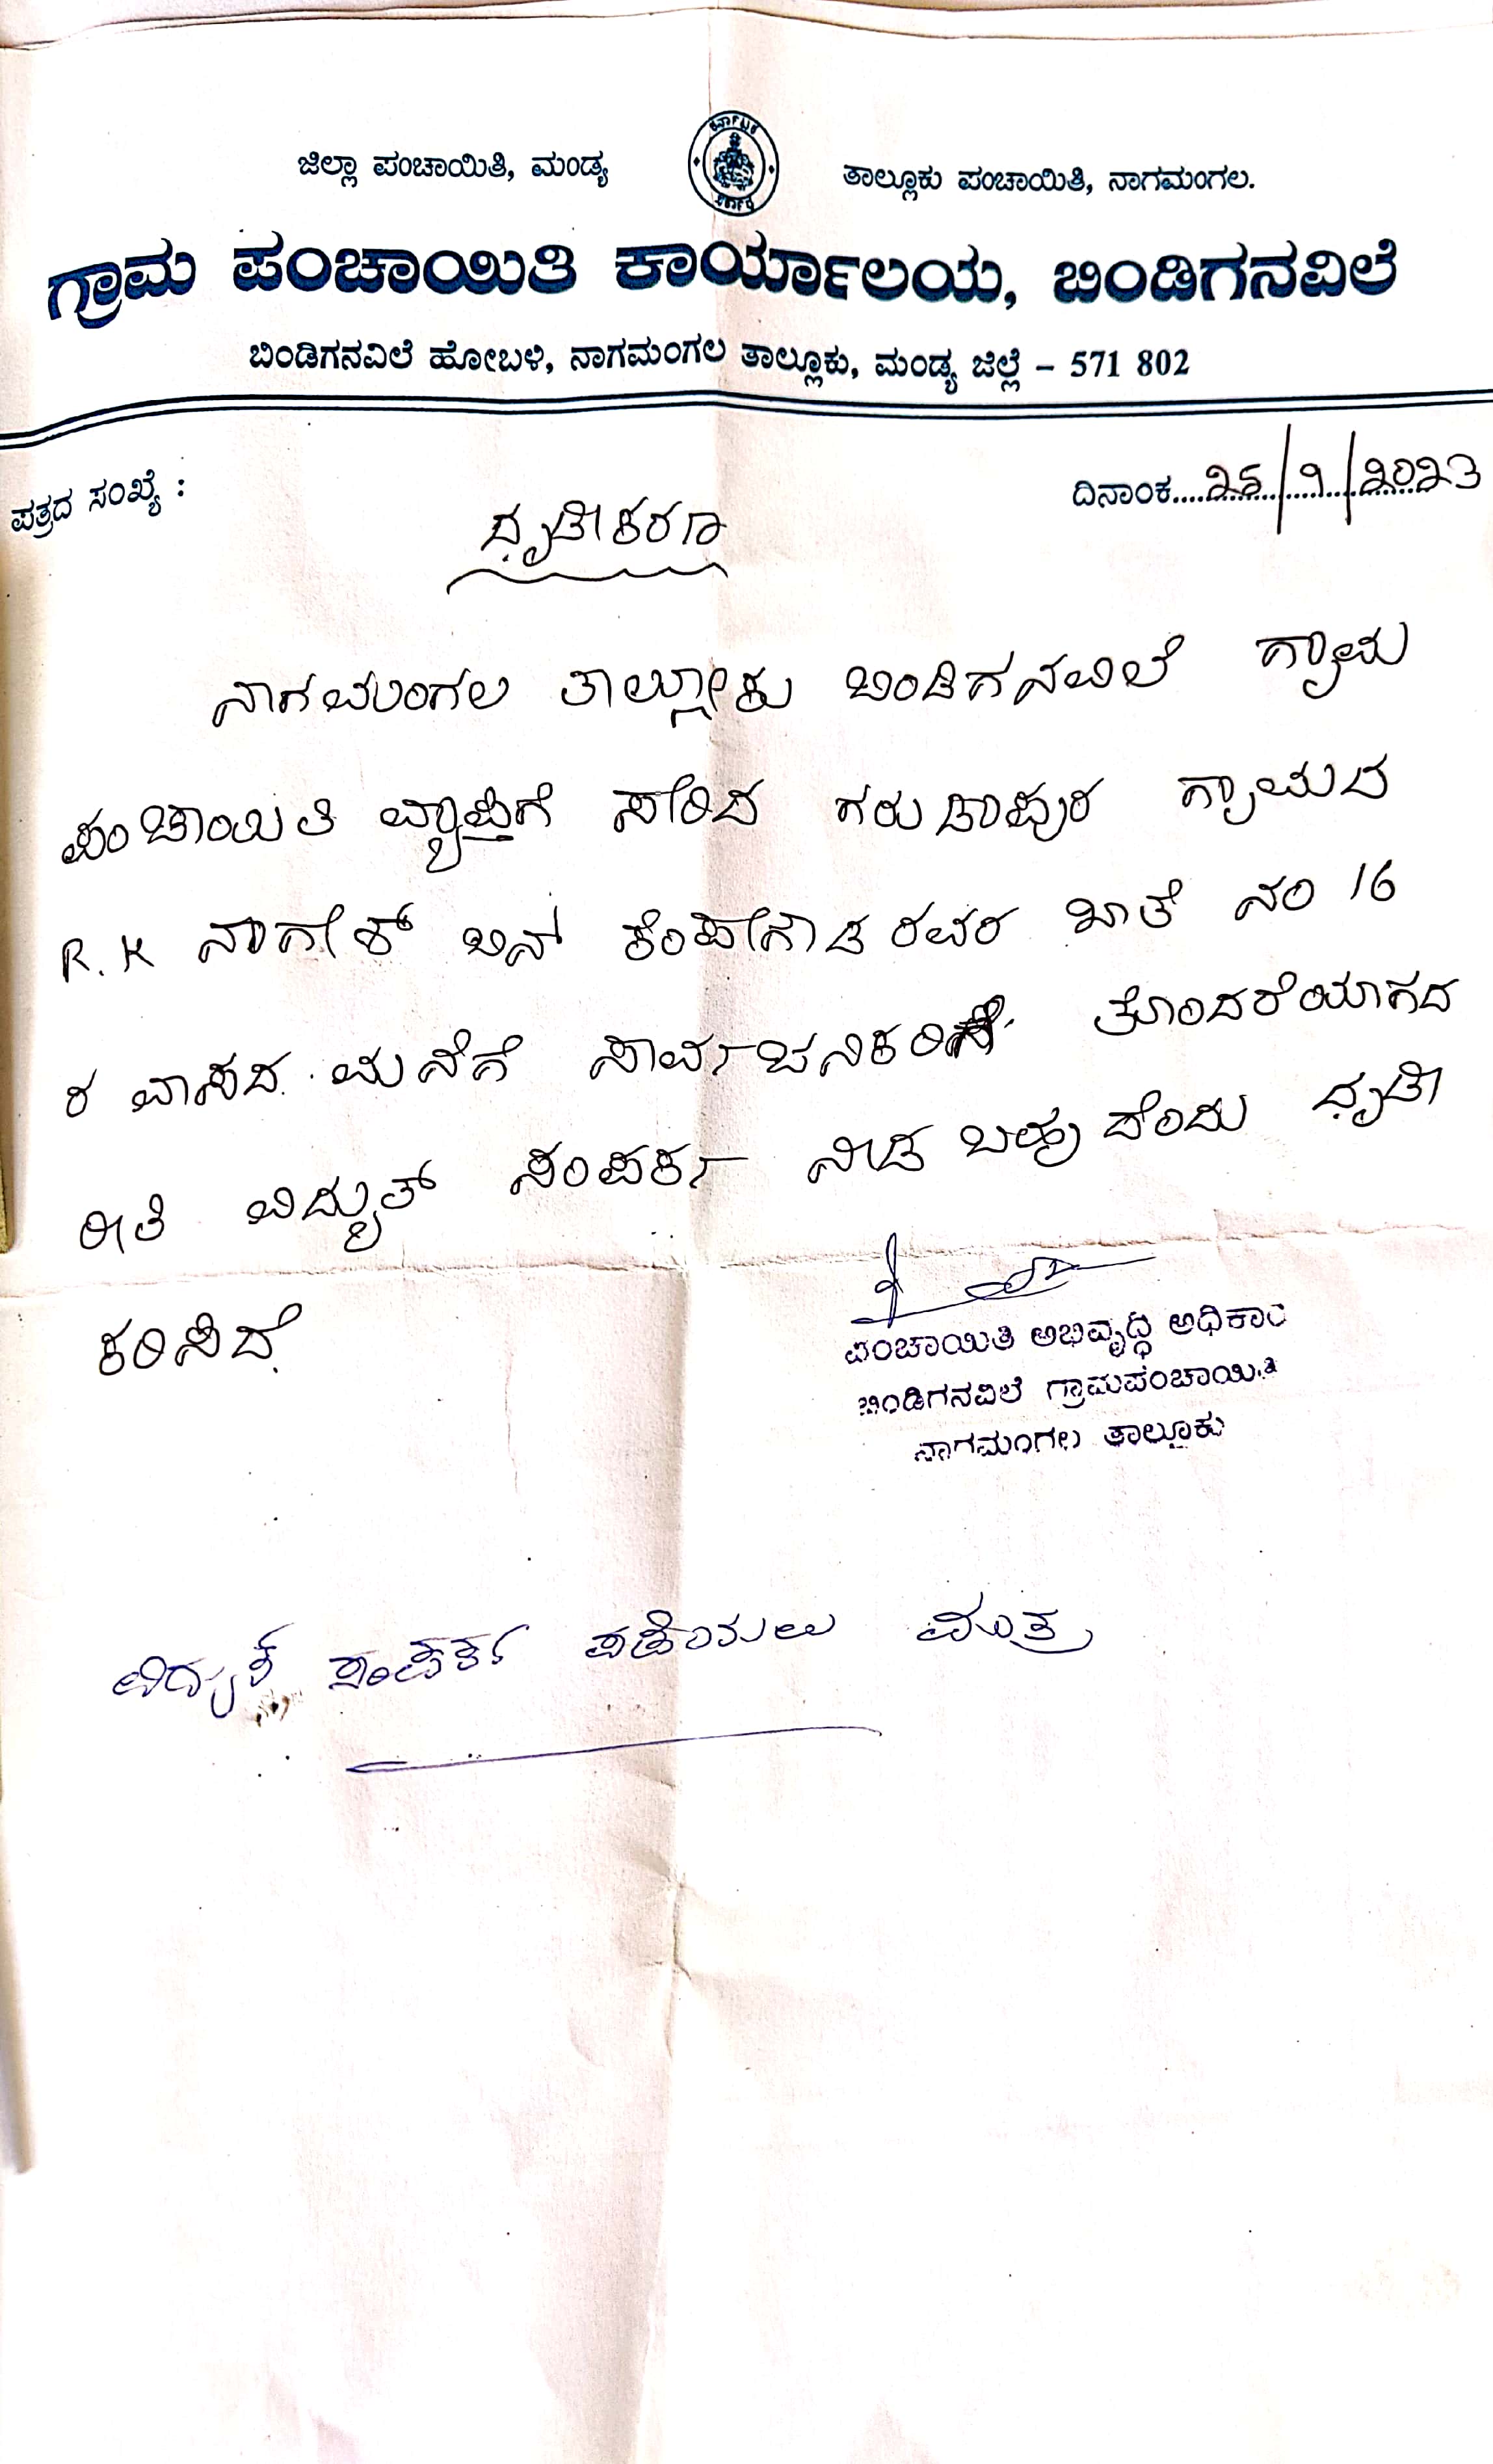 ಜಿಲ್ಲಾ ಪಂಚಾಯಿತಿ, ಮಂಡ್ಯ
ತಾಲ್ಲೂಕು ಪಂಚಾಯಿತಿ, ನಾಗಮಂಗಲ.
ಗ್ರಾಮ ಪಂಚಾಯಿತಿ ಕಾರ್ಯಾಲಯ, ಬಿಂಡಿಗನವಿಲೆ
ಬಿಂಡಿಗನವಿಲೆ ಹೋಬಳಿ, ನಾಗಮಂಗಲ ತಾಲ್ಲೂಕು, ಮಂಡ್ಯ ಜಿಲ್ಲೆ - 571 802
ಪತ್ರದ ಸಂಖ್ಯೆ :
ದಿನಾಂಕ
ಧೃಡೀಕರಣ
ನಾಗಮಂಗಲ ತಾಲ್ಲೂಕು ಬಿಂಡಿಗನವಿಲೆ ಗ್ರಾಮ
ಪಂಚಾಯಿತಿ ವ್ಯಾಪ್ತಿಗೆ ಸೇರಿದ ಗರುಡಾಪುರ ಗ್ರಾಮದ
R.K ನಾಗೇಶ್ ಬಿನ್ ಕೆಂಪೇಗೌಡ ರವರ ಖಾತೆ ನಂ 16
ರ ವಾಸದ ಮನೆಗೆ ಸಾರ್ವಜನಿಕರಿಗೆ ತೊಂದರೆಯಾಗದ
ರೀತಿ ವಿದ್ಯುತ್ ಸಂಪರ್ಕ ನೀಡ ಬಹುದೆಂದು ಧೃಡೀ
ಕರಿಸಿದೆ.
ಪಂಚಾಯಿತಿ ಅಭಿವೃದ್ಧಿ ಅಧಿಕಾರಿ
ಬಿಂಡಿಗನವಿಲೆ ಗ್ರಾಮಪಂಚಾಯಿತಿ
ನಾಗಮಂಗಲ ತಾಲ್ಲೂಕು
ವಿದ್ಯುತ್ ಸಂಪರ್ಕ ಪಡೆಯಲು ಮಾತ್ರ